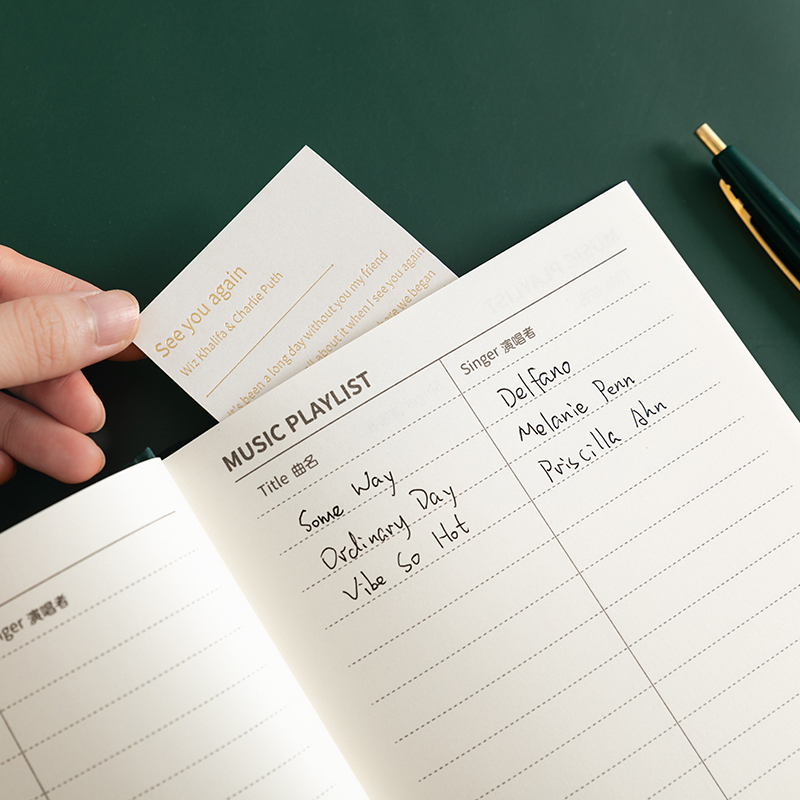 See you again
Wiz Khalifa & Charlie Puth
It's been a long day without you my friend
all about it when I see you again
we began
MUSIC PLAYLIST
Title 曲名
Singer 演唱者
Some Way
Delfano
Ordinary Day
Melanie Penn
Vibe So Hot
Priscilla Ahn
演唱者